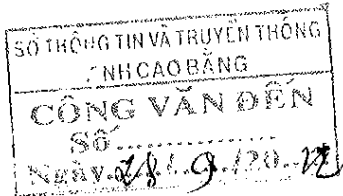 SỞ THÔNG TIN VÀ TRUYỀN THÔNG
NH CAO BẰNG
CÔNG VĂN ĐẾN
Số ................
Ngày 28 / 9 /20 12